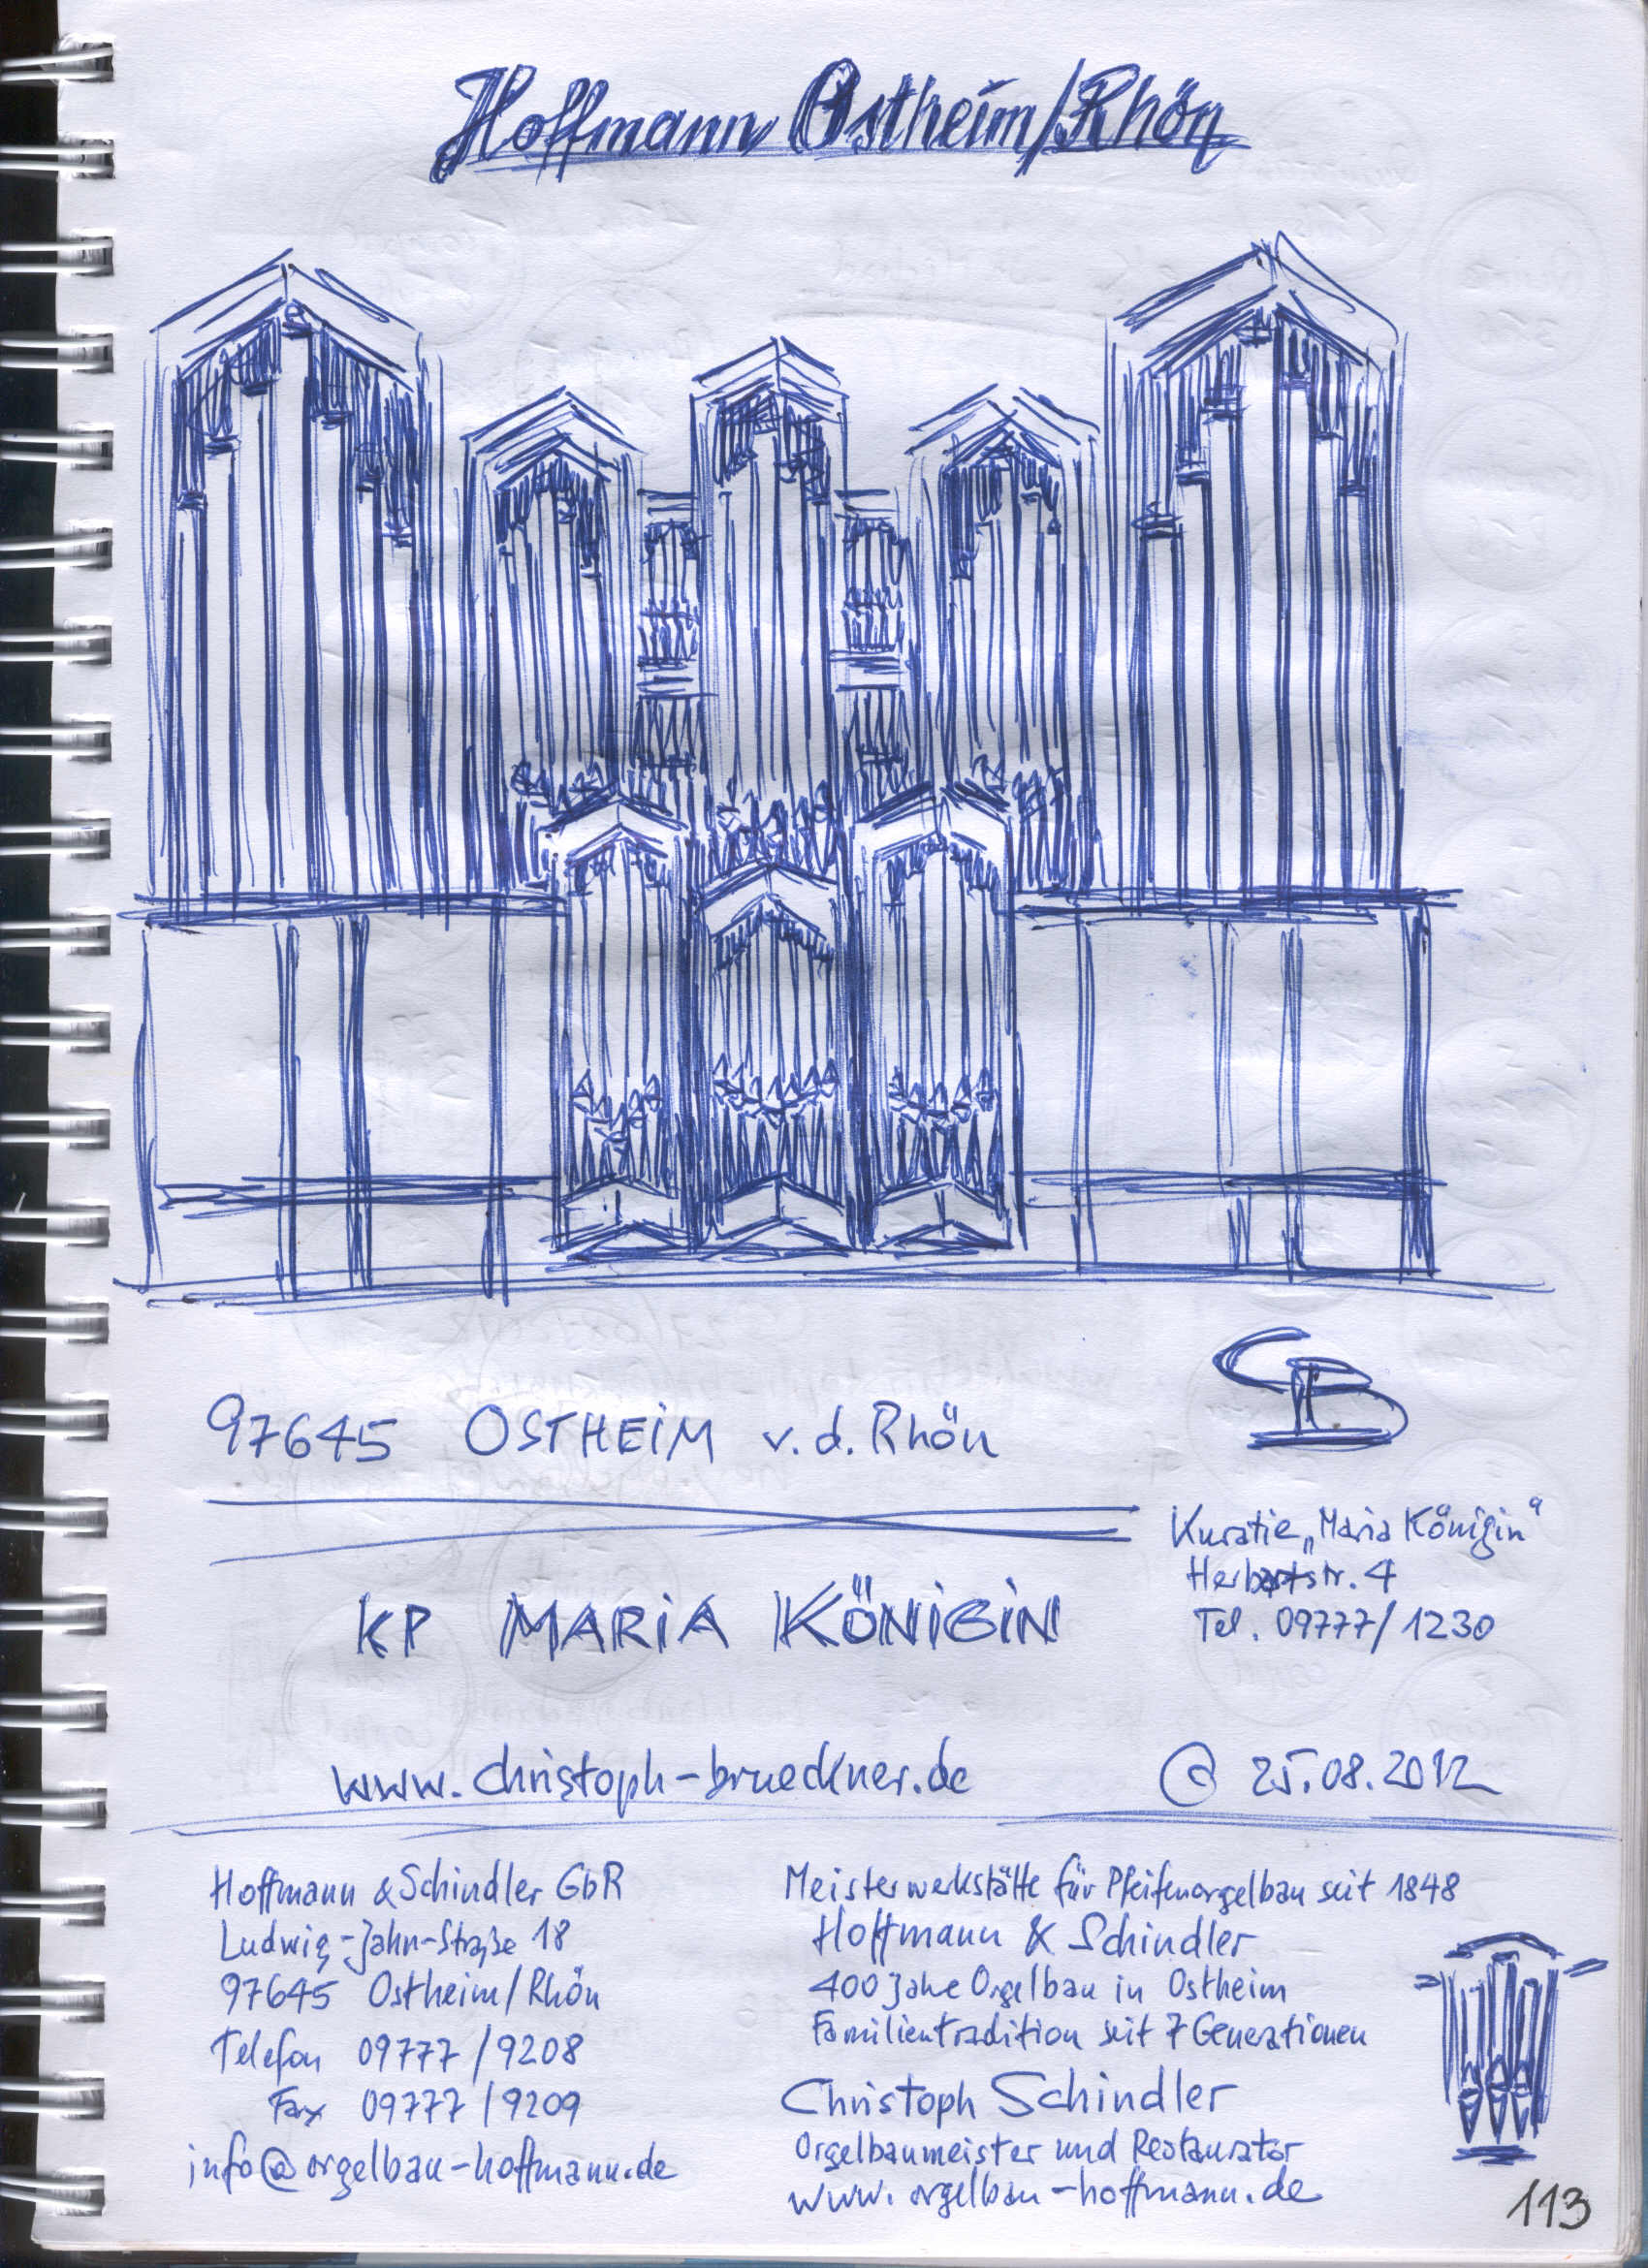 Hoffmann Ostheim/Rhön
CB
97645 OSTHEIM v. d. Rhön
Kuratie „Maria Königin“
Herbartstr. 4
Tel. 09777/1230
KP MARIA KÖNIGIN
www.christoph-brueckner.de
@ 25.08.2012
Hoffmann & Schindler GbR
Ludwig-Jahn-Straße 18
97645 Ostheim/Rhön
Telefon 09777/9208
Fax 09777/9209
info@orgelbau-hoffmann.de
Meisterwerkstätte für Pfeifenorgelbau seit 1848
Hoffmann & Schindler
400 Jahre Orgelbau in Ostheim
Familientradition seit 7 Generationen
Christoph Schindler
Orgelbaumeister und Restaurator
www.orgelbau-hoffmann.de
113